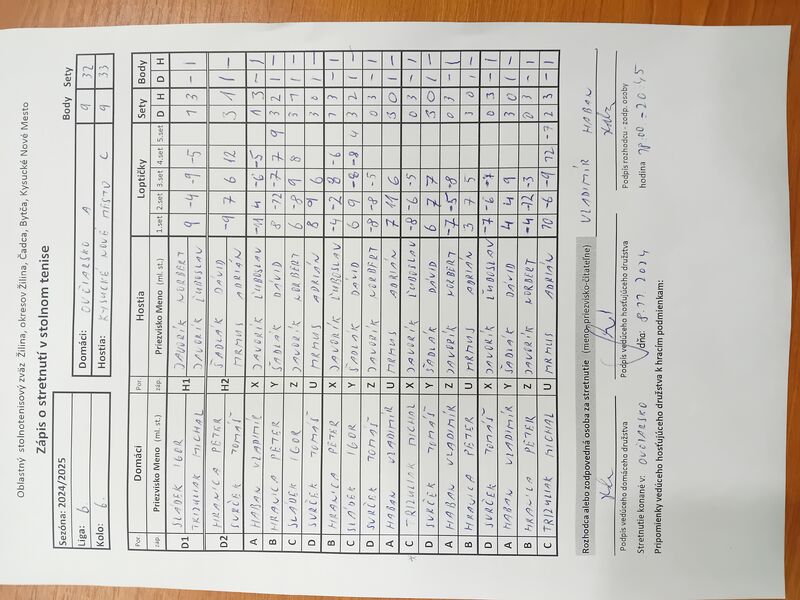 Oblastný stolnotenisový zväz Žilina, okresov Žilina, Čadca, Bytča, Kysucké Nové Mesto
Zápis o stretnutí v stolnom tenise
Body Sety
Sezóna: 2024/2025 Domáci: OVČIARSKO A 9 32
Liga: 6. Hostia: KYSUCKÉ NOVÉ MESTO C 9 33
Kolo: 6.
Por. Domáci Por. Hostia Loptičky Sety Body
záp. Priezvisko Meno (ml. st.) záp. Priezvisko Meno (ml. st.) 1.set 2.set 3.set 4.set 5.set D H D H
D1 SLÁDEK IGOR H1 JAVORÍK NORBERT 9 -4 -9 -5 1 3 - 1
TRIZULIAK MICHAL JAVORÍK ĽUBOSLAV
D2 HRANICA PETER H2 ŠADLÁK DÁVID -9 7 6 12 3 1 1 -
SVRČEK TOMÁŠ MRMUS ADRIÁN
A HABAN VLADIMÍR X JAVORÍK ĽUBOSLAV -11 4 -6 -5 1 3 - 1
B HRANICA PETER Y ŠADLÁK DÁVID 8 -12 -7 7 9 3 2 1 -
C SLÁDEK IGOR Z JAVORÍK NORBERT 6 -8 9 8 3 1 1 -
D SVRČEK TOMÁŠ U MRMUS ADRIÁN 8 9 6 3 0 1 -
B HRANICA PETER X JAVORÍK ĽUBOSLAV -4 -2 8 -6 1 3 - 1
C SLÁDEK IGOR Y ŠADLÁK DÁVID 6 9 -8 -8 4 3 2 1 -
D SVRČEK TOMÁŠ Z JAVORÍK NORBERT -8 -8 -5 0 3 - 1
A HABAN VLADIMÍR U MRMUS ADRIÁN 7 11 6 3 0 1 -
C TRIZULIAK MICHAL X JAVORÍK ĽUBOSLAV -8 -6 -5 0 3 - 1
D SVRČEK TOMÁŠ Y ŠADLÁK DÁVID 6 7 7 3 0 1 -
A HABAN VLADIMÍR Z JAVORÍK NORBERT -7 -5 -8 0 3 - 1
B HRANICA PETER U MRMUS ADRIÁN 3 7 5 3 0 1 -
D SVRČEK TOMÁŠ X JAVORÍK ĽUBOSLAV -7 -6 -7 0 3 - 1
A HABAN VLADIMÍR Y ŠADLÁK DÁVID 4 4 9 3 0 1 -
B HRANICA PETER Z JAVORÍK NORBERT -4 -12 -3 0 3 - 1
C TRIZULIAK MICHAL U MRMUS ADRIÁN 10 -6 -9 12 -7 2 3 - 1
Rozhodca alebo zodpovedná osoba za stretnutie (meno-priezvisko-čitateľne) VLADIMÍR HABAN
Podpis vedúceho domáceho družstva Podpis vedúceho hosťujúceho družstva Podpis rozhodcu - zodp. osoby
Stretnutie konané v: OVČIARSKO dňa: 8.11.2024 hodina 18.00 - 20.45
Pripomienky vedúceho hosťujúceho družstva k hracím podmienkam: